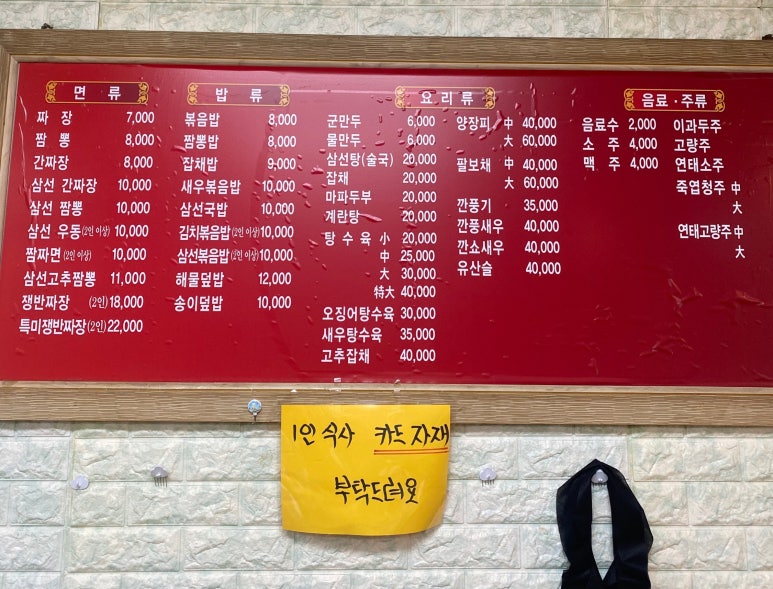 면 류
짜 장 7,000
짬 뽕 8,000
간짜장 8,000
삼선 간짜장 10,000
삼선 짬뽕 10,000
삼선 우동(2인 이상) 10,000
짬짜면(2인 이상) 10,000
삼선고추짬뽕 11,000
쟁반짜장 (2인) 18,000
특미쟁반짜장(2인) 22,000
밥 류
볶음밥 8,000
짬뽕밥 8,000
잡채밥 9,000
새우볶음밥 10,000
삼선국밥 10,000
김치볶음밥(2인 이상) 10,000
삼선볶음밥(2인 이상) 10,000
해물덮밥 12,000
송이덮밥 10,000
요 리 류
군만두 6,000
물만두 6,000
삼선탕(술국) 20,000
잡채 20,000
마파두부 20,000
계란탕 20,000
탕 수 육 小 20,000
中 25,000
大 30,000
特大 40,000
오징어탕수육 30,000
새우탕수육 35,000
고추잡채 40,000
양장피 中 40,000
大 60,000
팔보채 中 40,000
大 60,000
깐풍기 35,000
깐풍새우 40,000
깐쇼새우 40,000
유산슬 40,000
음료 · 주류
음료수 2,000
소 주 4,000
맥 주 4,000
이과두주
고량주
연태소주
죽엽청주 中
大
연태고량주 中
大
1인 식사 카드 자재
부탁드려요